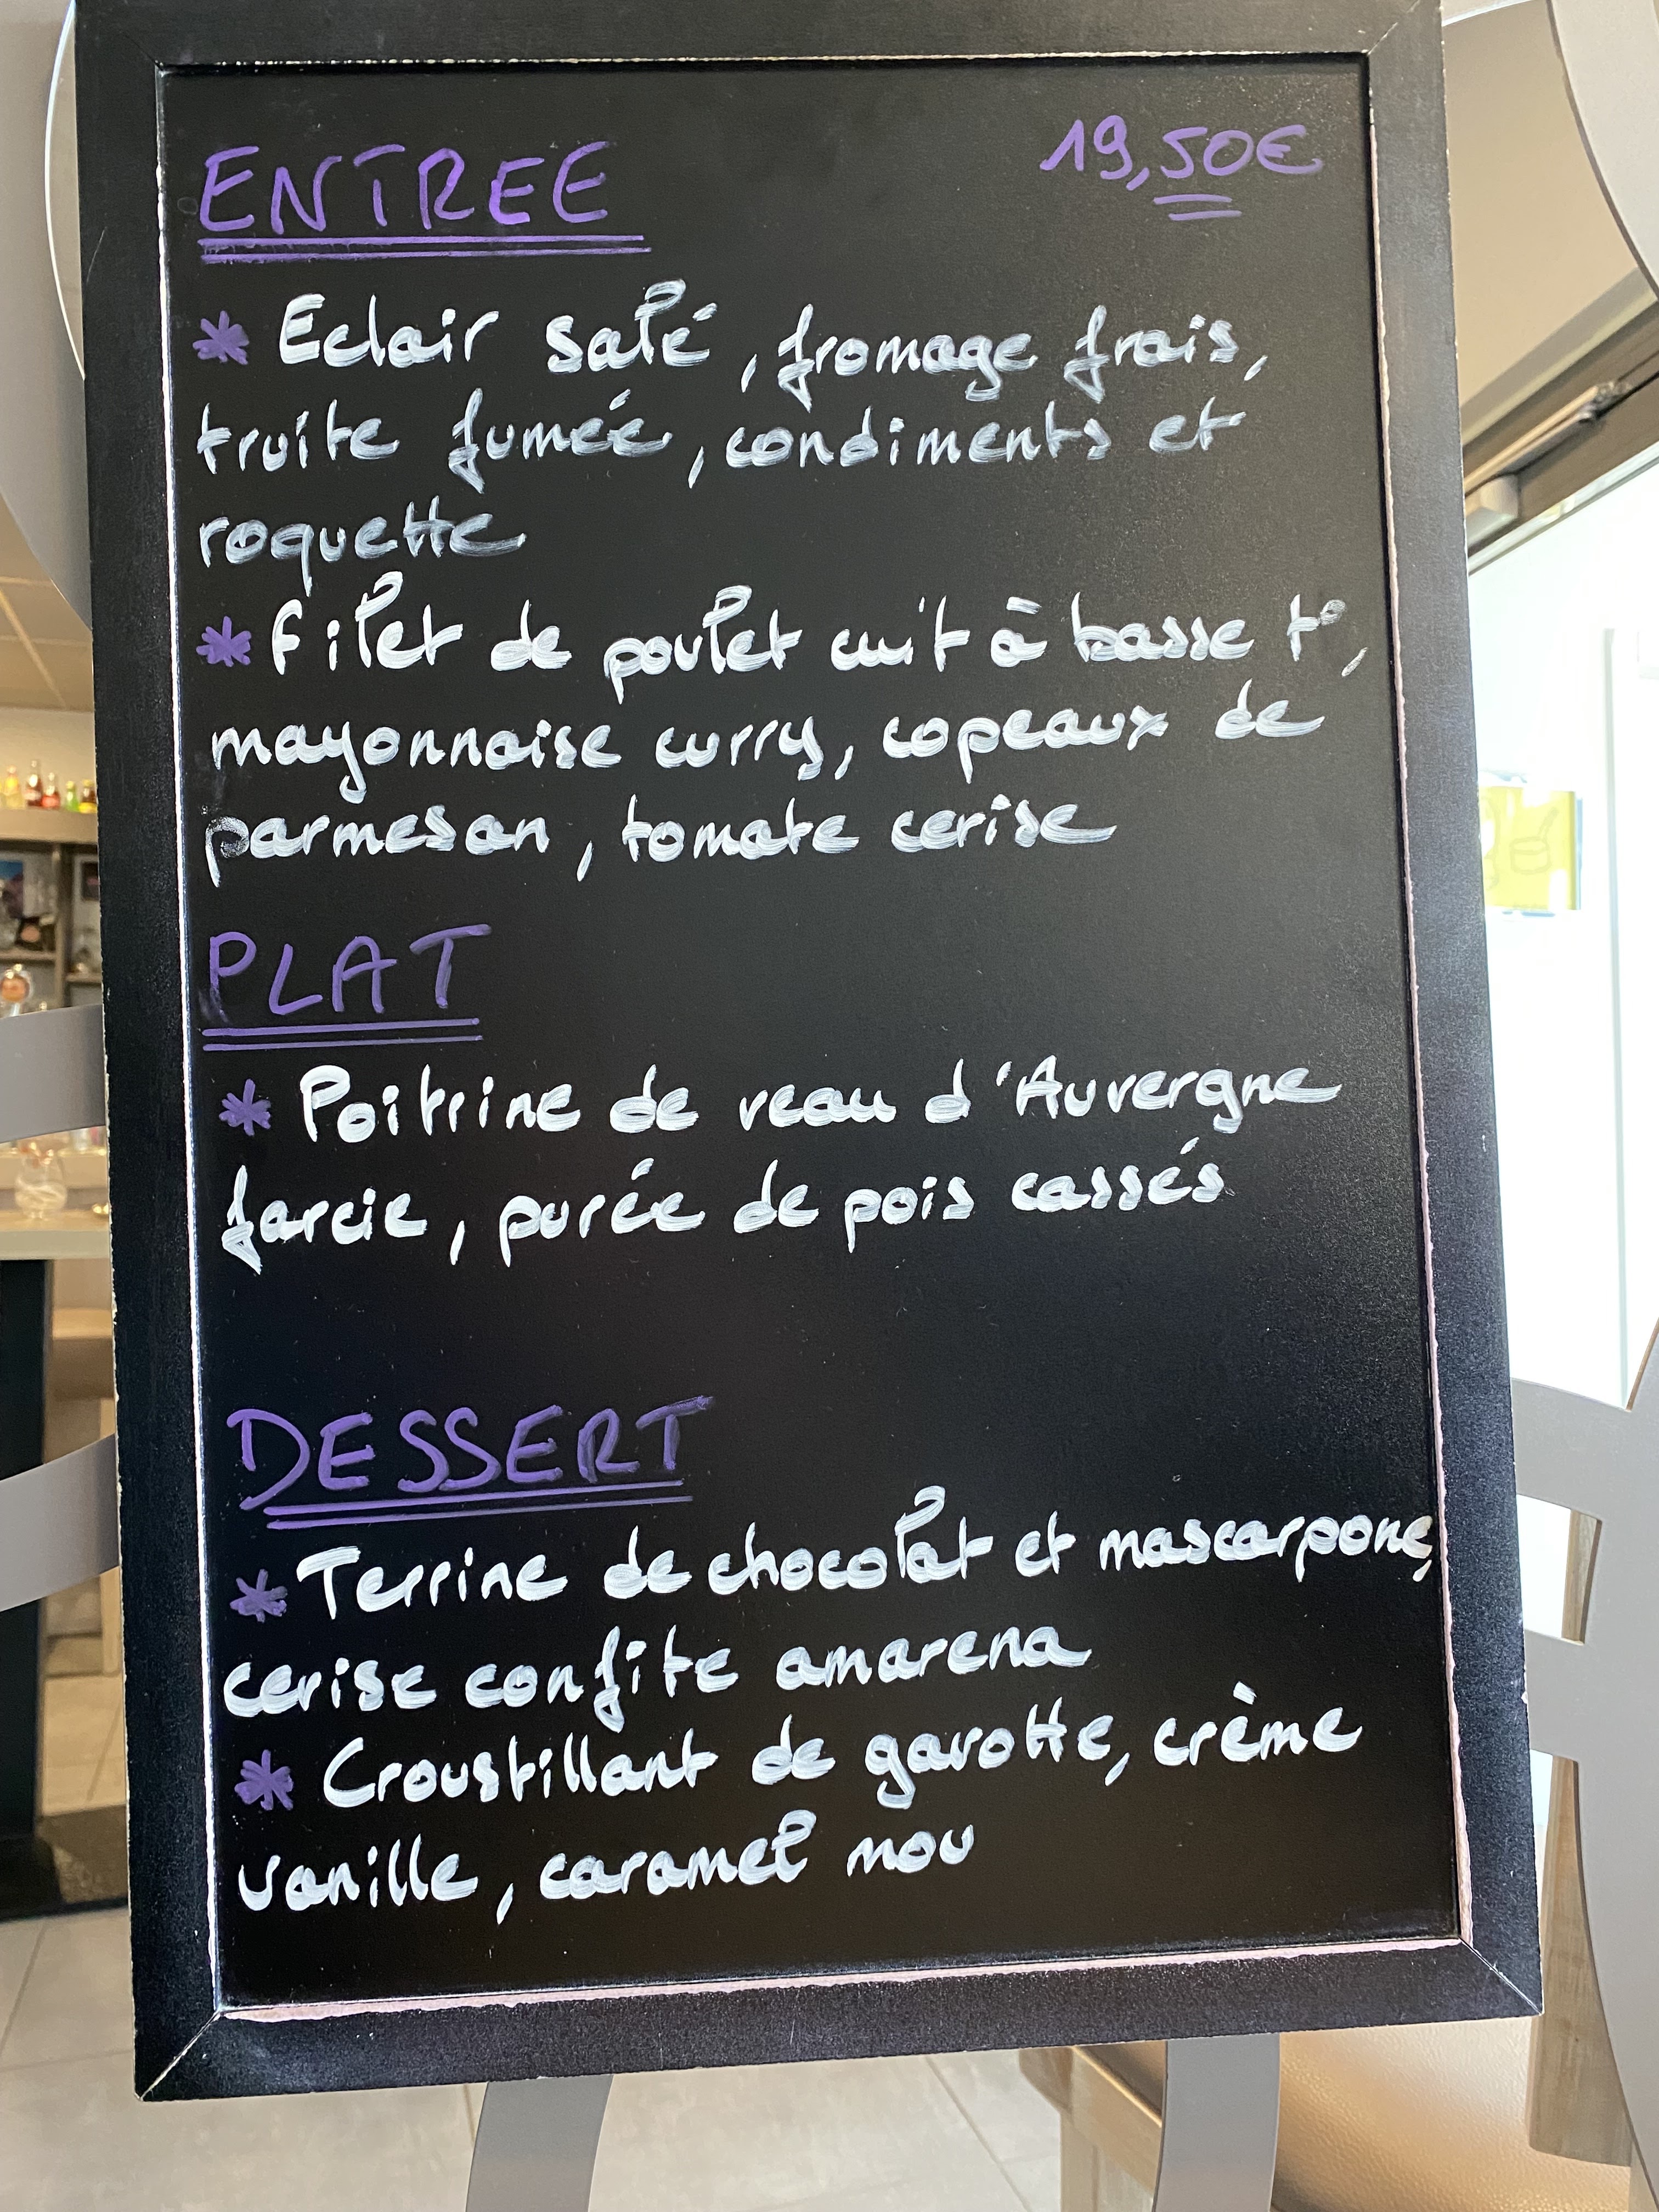 ENTREE 19,50€
* Eclair salé, fromage frais,
truite fumée, condiments et
roquette
* filet de poulet cuit à basse t°,
mayonnaise curry, copeaux de
parmesan, tomate cerise
PLAT
* Poitrine de veau d'Auvergne
farcie, purée de pois cassés
DESSERT
* Terrine de chocolat et mascarpone,
cerise confite amarena
* Croustillant de gavotte, crème
vanille, caramel mou